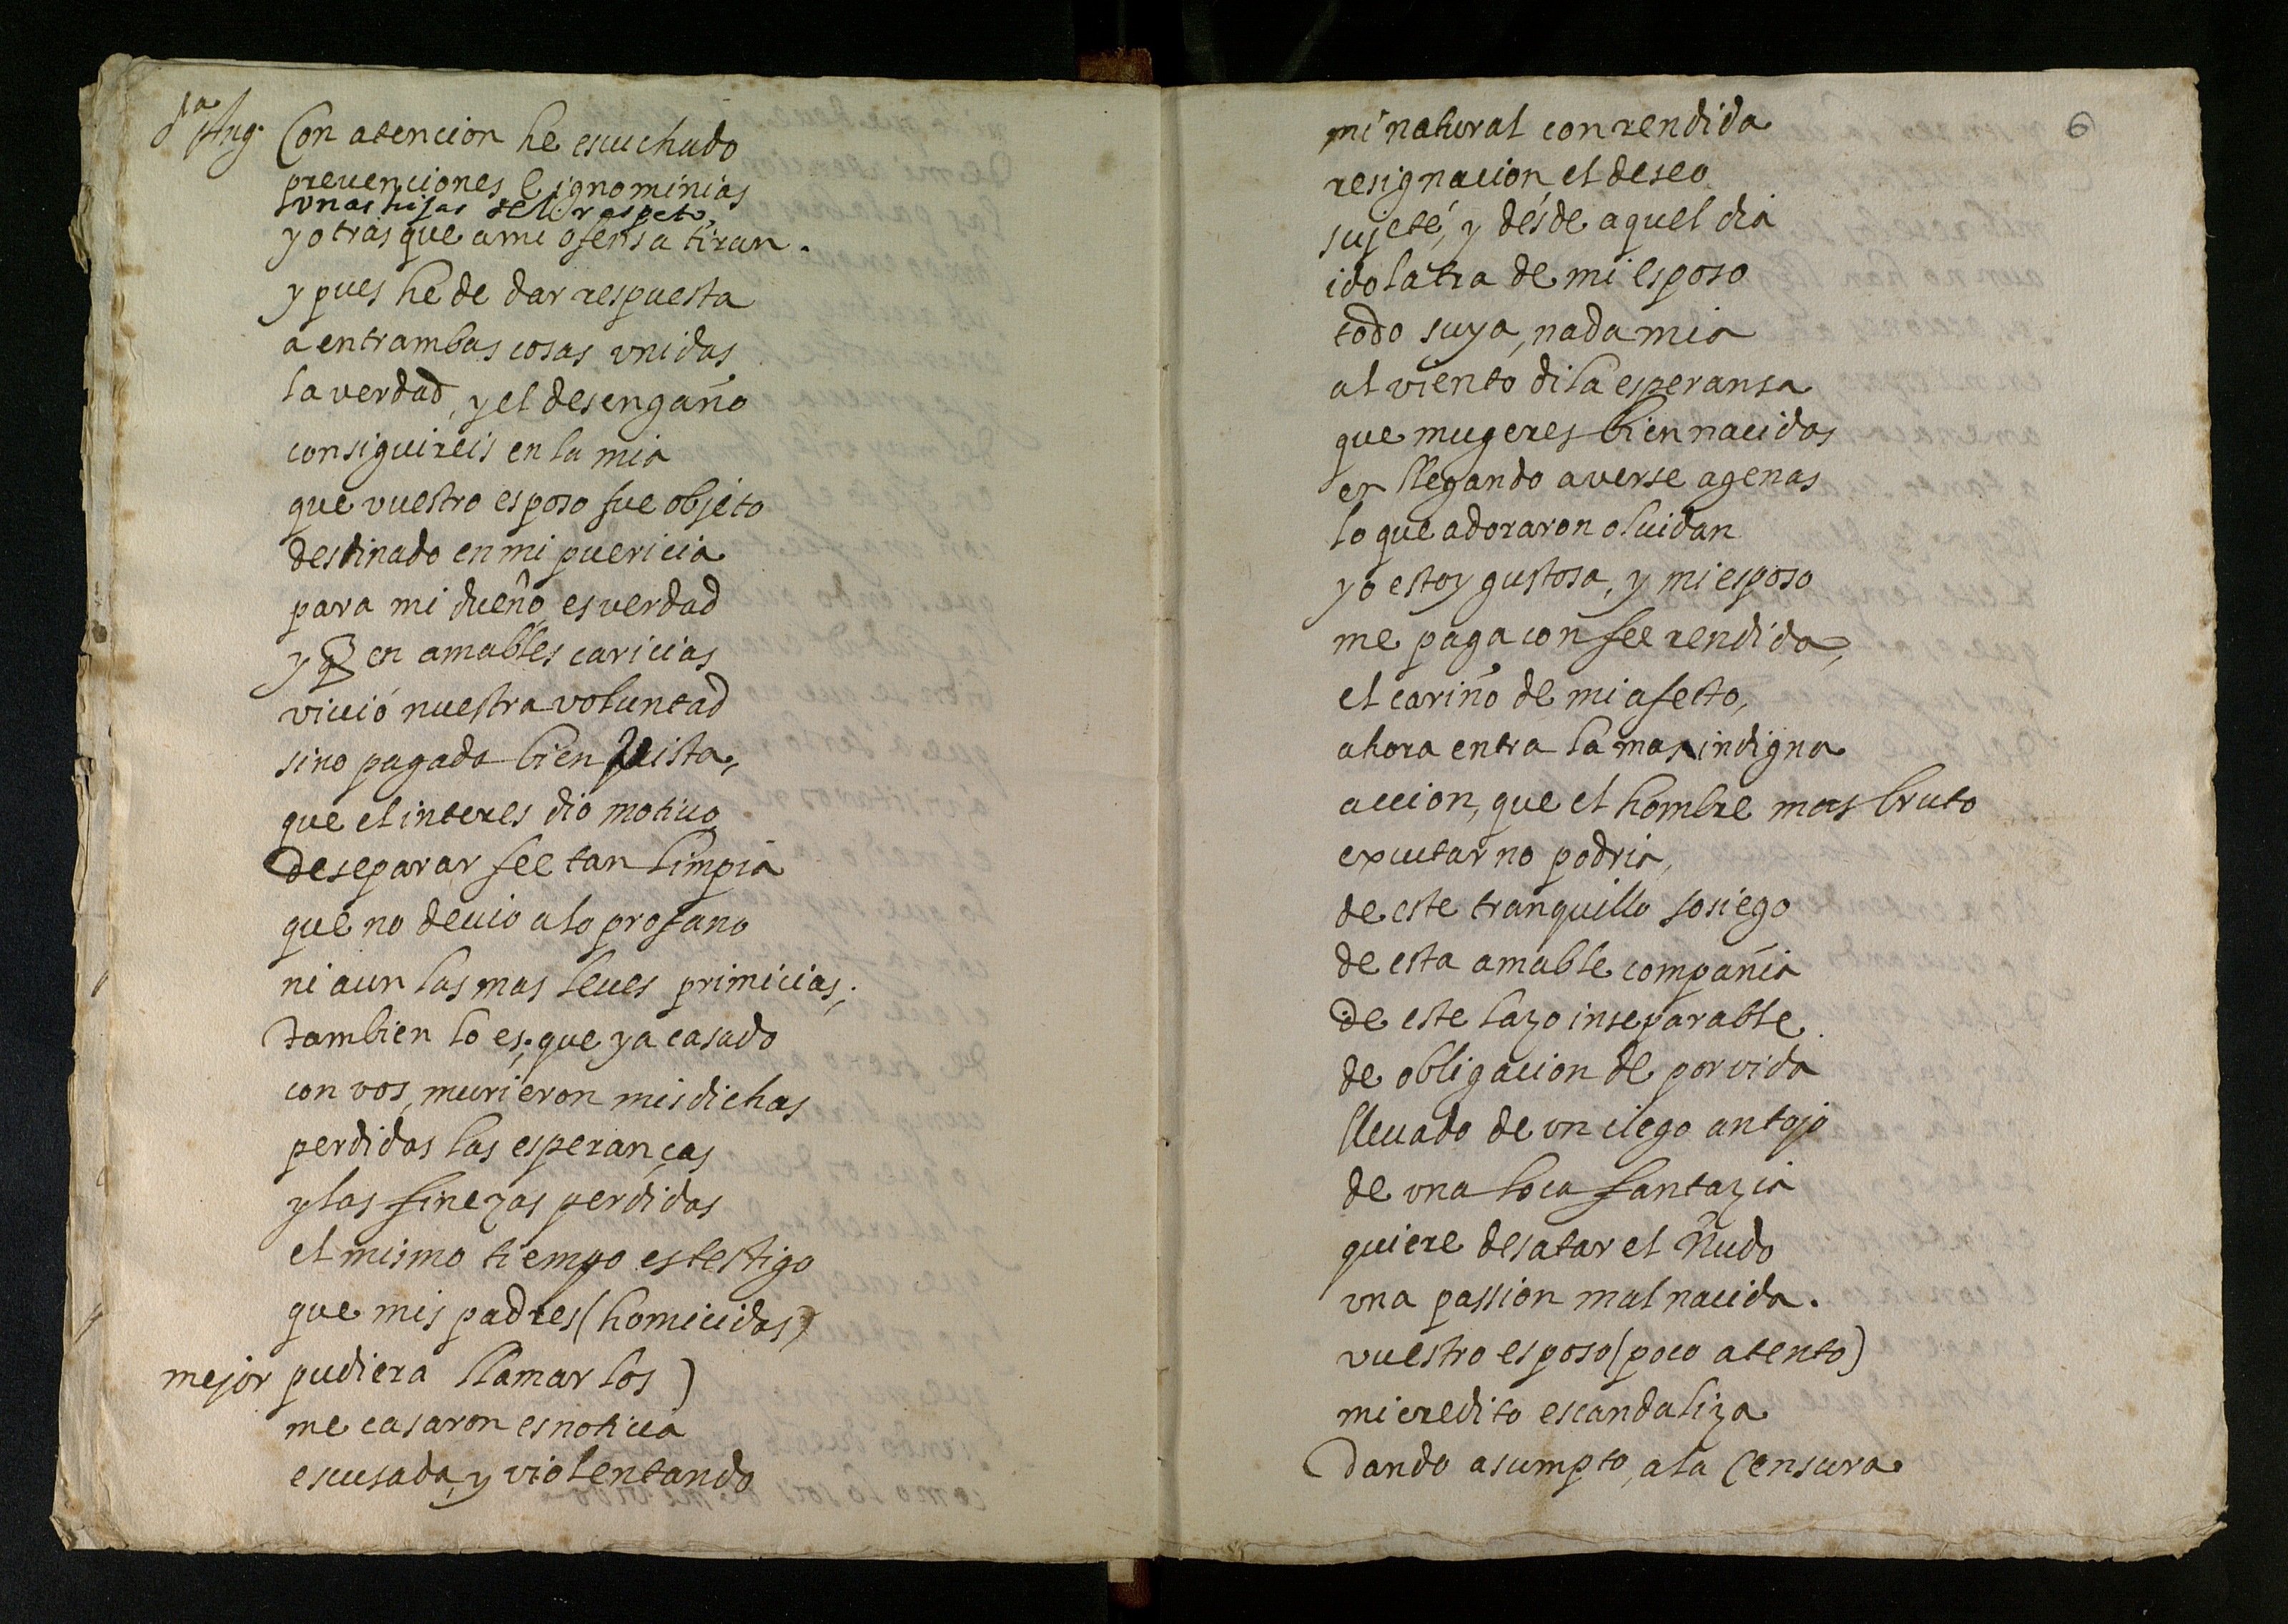 d.ª Ang. Con atencion he escuchado
prevenciones e ignominias
vnas hijas del respeto,
y otras que a mi ofensa tiran.
y pues he de dar respuesta
a entrambas cosas vnidas
la verdad, y el desengaño
consiguireis en la mia
que vuestro esposo fue objeto
destinado en mi puericia
para mi dueño es verdad
y q en amables caricias
viuió nuestra voluntad
sino pagada bien quista,
que el interes dio motiuo
de separar fee tan limpia
que no deuio a lo profano
ni aun las mas leues primicias;
tambien lo es, que ya casado
con vos, murieron mis dichas
perdidas las esperanças
y las finezas perdidas
el mismo tiempo es testigo
que mis padres (homicidas)
mejor pudiera llamarlos)
me casaron es noticia
escusada, y violentando
6
mi natural con rendida
resignacion, el deseo
sujeté, y desde aquel dia
idolatra de mi esposo
todo suya, nada mia
al viento di la esperansa
que mugeres bien nacidas
en llegando a verse agenas
lo que adoraron oluidan
yo estoy gustosa, y mi esposo
me paga con fee rendida,
el cariño de mi afecto,
ahora entra la mas indigna
accion, que el hombre mas bruto
executar no podria,
de este tranquillo sosiego
de esta amable compañia
de este lazo inseparable
de obligacion de por vida
lleuado de vn ciego antojo
de vna loca fantazia
quiere desatar el ñudo
vna passion mal nacida.
vuestro esposo (poco atento)
mi credito escandaliza
dando asumpto, a la censura